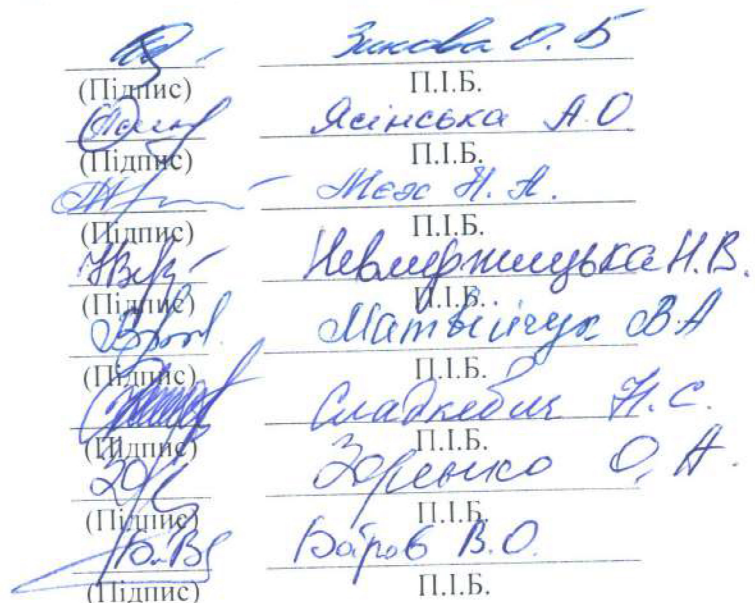 Зикова О. Б
(Підпис) П.І.Б.
Ясінська А.О
(Підпис) П.І.Б.
Мєх Н. А.
(Підпис) П.І.Б.
Невмержицька Н.В.
(Підпис) П.І.Б.
Матвійчук В.А
(Підпис) П.І.Б.
Сладкевич Н.С.
(Підпис) П.І.Б.
Зоренко О, А.
(Підпис) П.І.Б.
Баїров В.О.
(Підпис) П.І.Б.